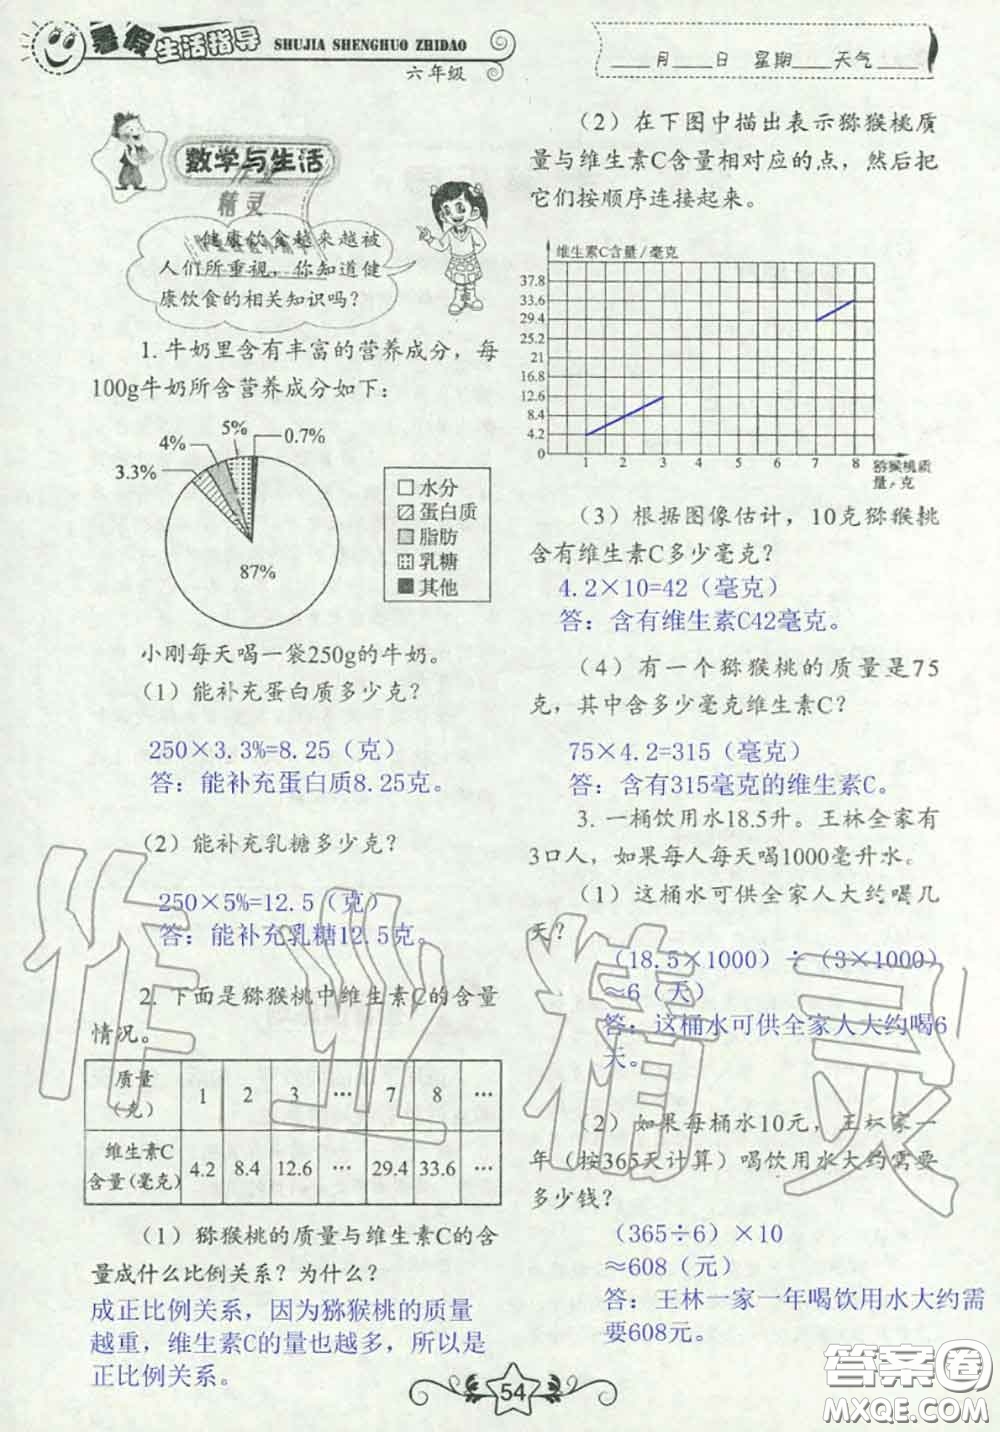 暑假生活指导
SHUJIA SHENGHUO ZHIDAO
六年级
___月___日 星期___天气___
数学与生活
精灵
健康饮食越来越被
人们所重视，你知道健
康饮食的相关知识吗？
1. 牛奶里含有丰富的营养成分，每
100g牛奶所含营养成分如下：
5%
0.7%
4%
3.3%
87%
水分
蛋白质
脂肪
乳糖
其他
小刚每天喝一袋250g的牛奶。
（1）能补充蛋白质多少克？
250×3.3%=8.25（克）
答：能补充蛋白质8.25克。
（2）能补充乳糖多少克？
250×5%=12.5（克）
答：能补充乳糖12.5克。
2. 下面是猕猴桃中维生素C的含量
情况。
质量（克） 1 2 3 … 7 8 …
维生素C含量（毫克） 4.2 8.4 12.6 … 29.4 33.6 …
（1）猕猴桃的质量与维生素C的含
量成什么比例关系？为什么？
成正比例关系，因为猕猴桃的质量
越重，维生素C的量也越多，所以是
正比例关系。
（2）在下图中描出表示猕猴桃质
量与维生素C含量相对应的点，然后把
它们按顺序连接起来。
维生素C含量/毫克
37.8
33.6
29.4
25.2
21
16.8
12.6
8.4
4.2
0
1 2 3 4 5 6 7 8 猕猴桃质
量/克
（3）根据图像估计，10克猕猴桃
含有维生素C多少毫克？
4.2×10=42（毫克）
答：含有维生素C42毫克。
（4）有一个猕猴桃的质量是75
克，其中含多少毫克维生素C？
75×4.2=315（毫克）
答：含有315毫克的维生素C。
3. 一桶饮用水18.5升。王林全家有
3口人，如果每人每天喝1000毫升水。
（1）这桶水可供全家人大约喝几
天？
（18.5×1000）÷（3×1000）
≈6（天）
答：这桶水可供全家人大约喝6
天。
（2）如果每桶水10元，王林家一
年（按365天计算）喝饮用水大约需要
多少钱？
（365÷6）×10
≈608（元）
答：王林一家一年喝饮用水大约需
要608元。
54
作业精灵
答案圈
MXQE.COM